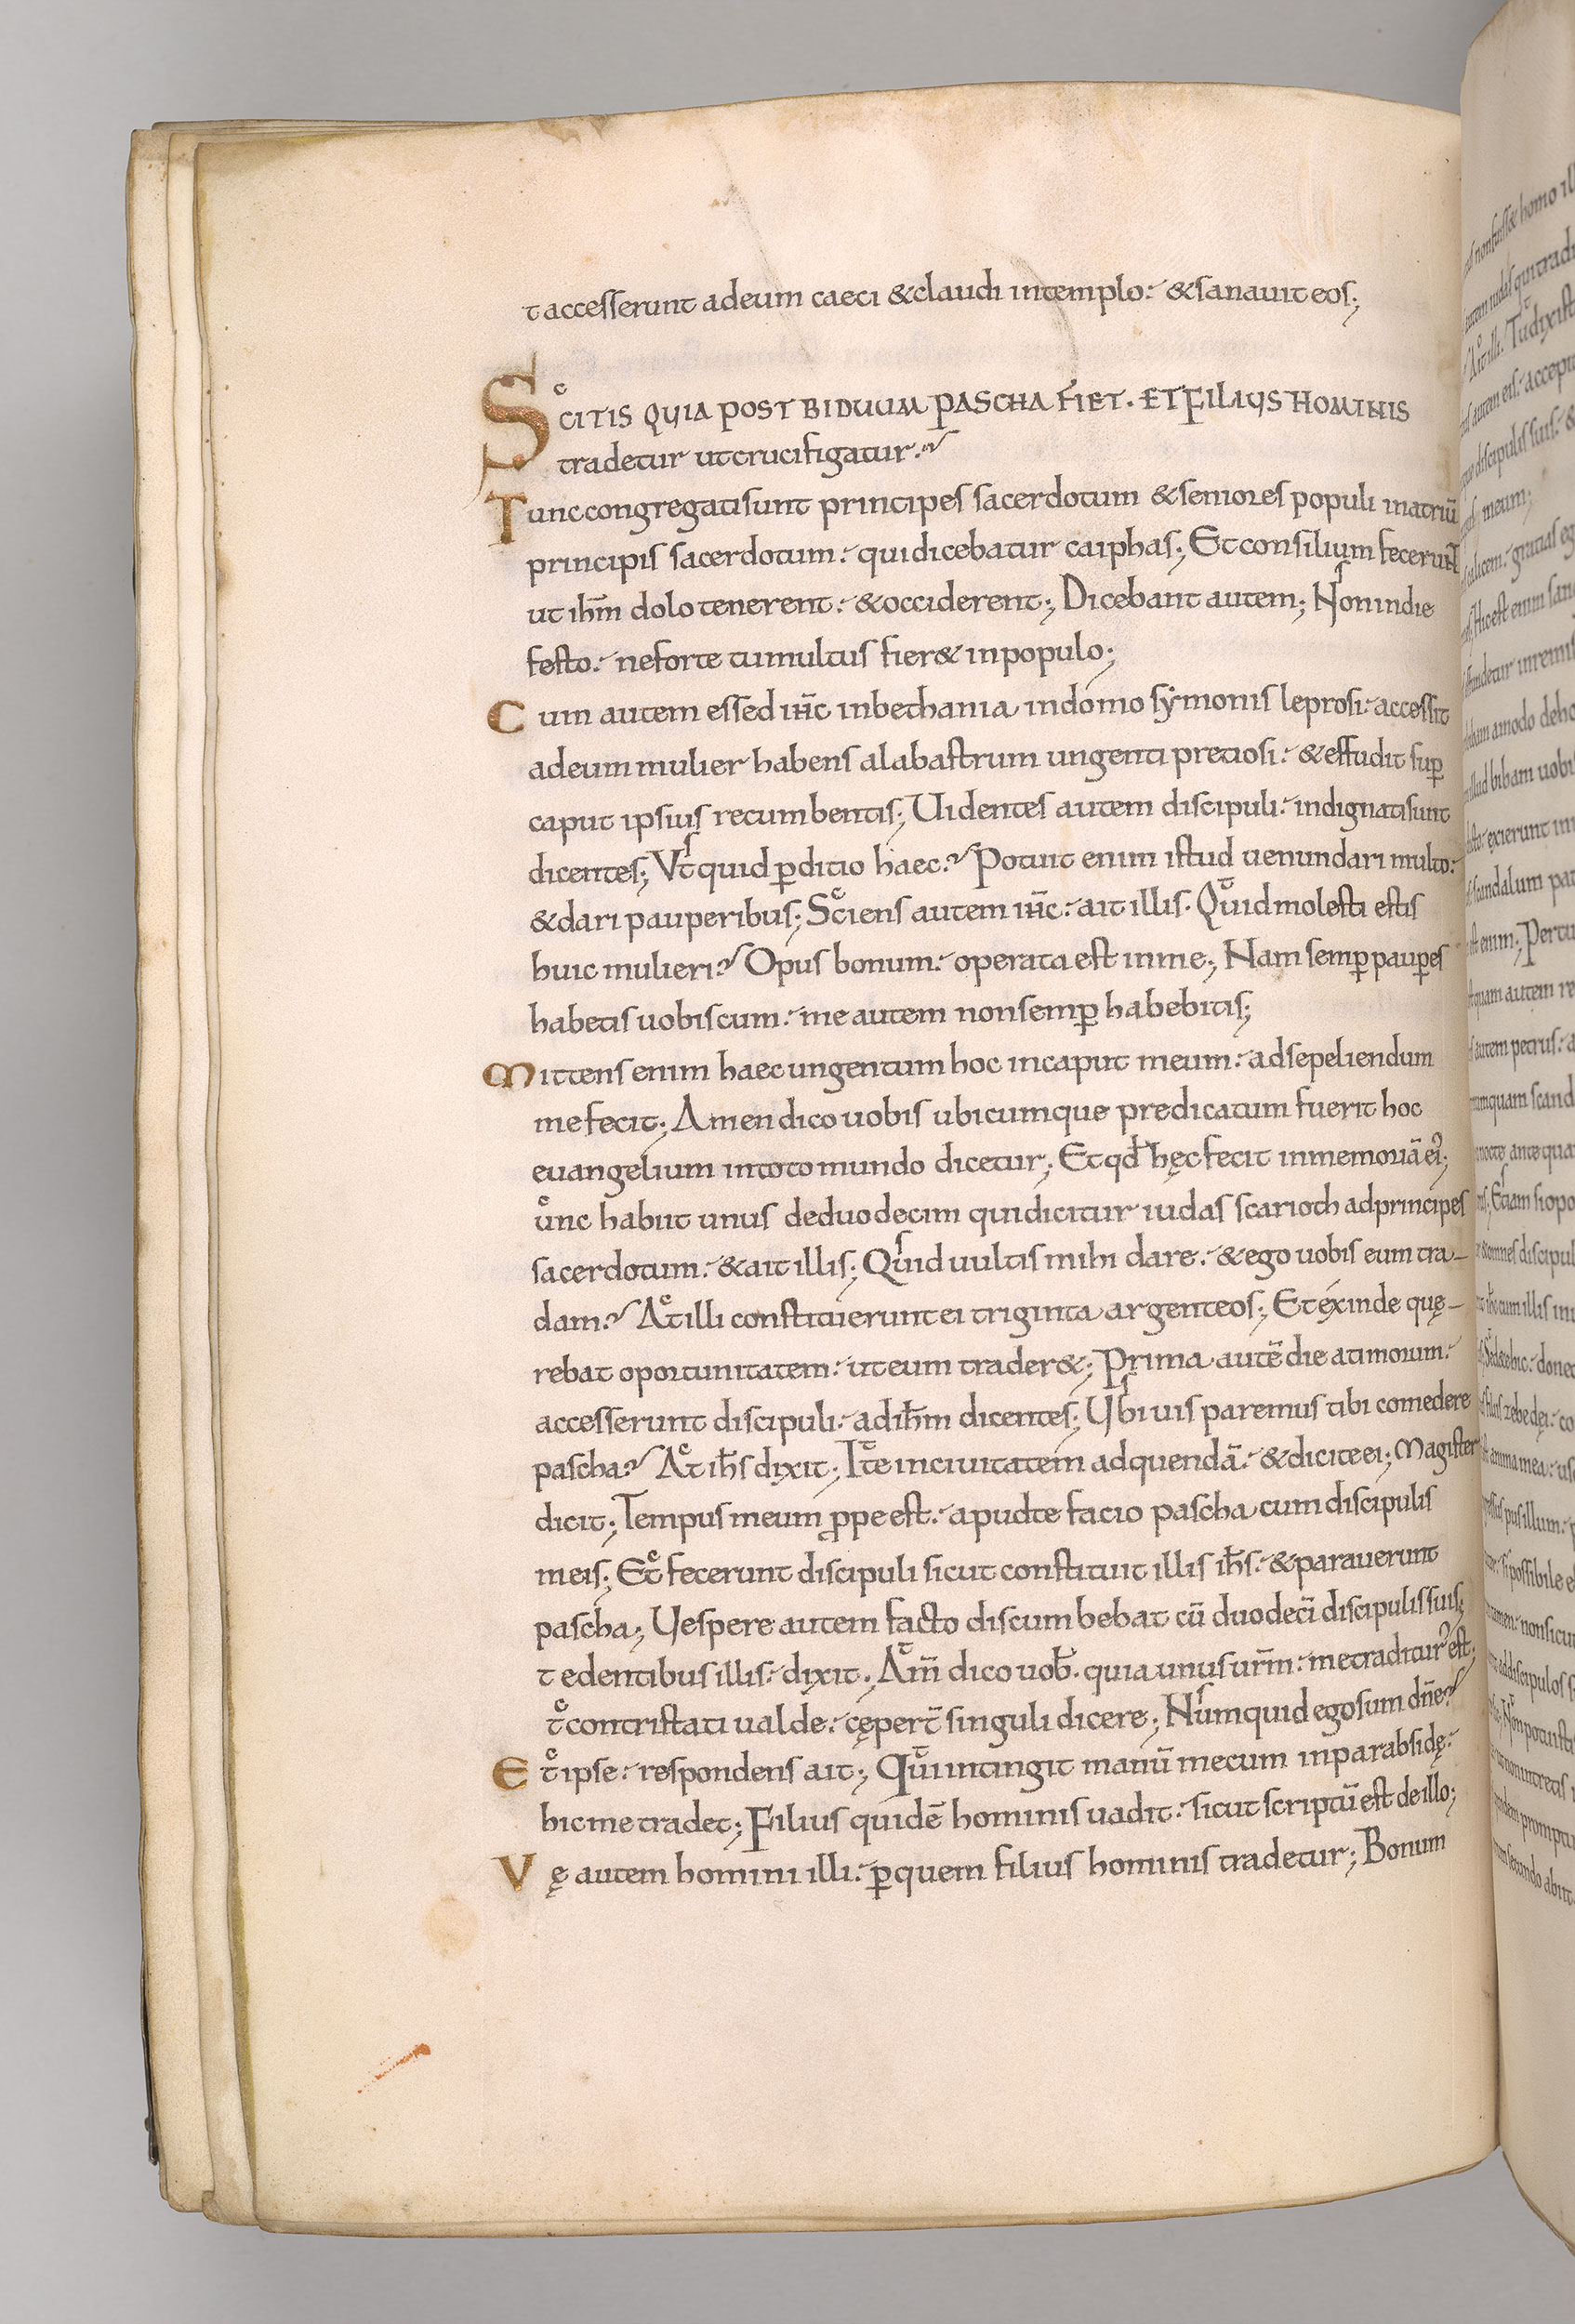 t accesserunt ad eum caeci & claudi in templo. & sanauit eos;
SCITIS QUIA POST BIDUUM PASCHA FIET. ET FILIUS HOMINIS
tradetur ut crucifigatur.
Tunc congregati sunt principes sacerdotum & seniores populi in atriū
principis sacerdotum. qui dicebatur caiphas; Et consilium fecerunt
ut ihm̄ dolo tenerent. & occiderent; Dicebant autem; Non in die
festo. ne forte tumultus fier& in populo;
Cum autem ess& ihc̄ in bethania in domo symonis leprosi. accessit
ad eum mulier habens alabastrum ungenti pretiosi. & effudit sup̄
caput ipsius recumbentis; Uidentes autem discipuli. indignati sunt
dicentes; Vt quid p̄ditio haec? Potuit enim istud uenundari multo.
& dari pauperibus; Sciens autem ihc̄. ait illis. Quid molesti estis
huic mulieri? Opus bonum. operata est in me; Nam semp̄ paup̄es
habetis uobiscum. me autem non semp̄ habebitis;
Mittens enim haec ungentum hoc in caput meum. ad sepeliendum
me fecit; Amen dico uobis ubicumque predicatum fuerit hoc
euangelium in toto mundo dicetur; Et qd̄ hęc fecit in memoriā ei';
unc habiit unus de duodecim qui dicitur iudas scarioth ad principes
sacerdotum. & ait illis; Quid uultis mihi dare. & ego uobis eum tra-
dam? At illi constituerunt ei triginta argenteos; Et éxinde quę-
rebat oportunitatem. ut eum trader&; Prima autē die atimorum.
accesserunt discipuli. ad ihm̄ dicentes; Ubi uis paremus tibi comedere
pascha? At ihs̄ dixit; Ite in ciuitatem ad quendā. & dicite ei; Magister
dicit; Tempus meum ꝓpe est. apud te facio pascha cum discipulis
meis; Et fecerunt discipuli sicut constituit illis ihs̄. & parauerunt
pascha; Uespere autem facto discumbebat cū duodecī discipulis suis;
t edentibus illis. dixit. Am̄ dico uob̄. quia unus urm̄. me traditur' est;
t contristati ualde. cępert̄ singuli dicere; Numquid ego sum dn̄e?
Et ipse. respondens ait; Qui intingit manū mecum in parabsidę.
hic me tradet; Filius quidē hominis uadit. sicut scriptū est de illo;
Vę autem homini illi. p̄ quem filius hominis tradetur; Bonum